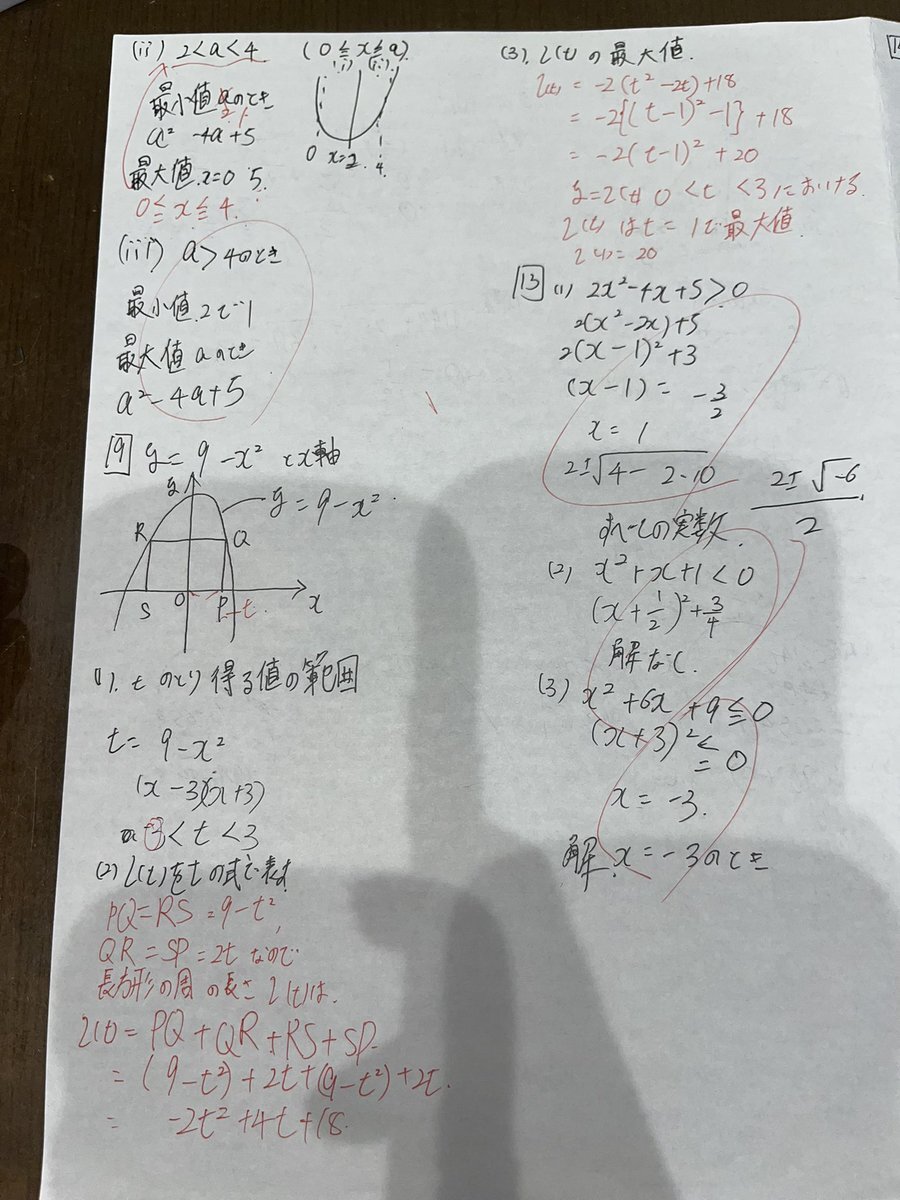 (ii) 2<a<4 (0≦x≦a)
最小値 のとき
a² -4a+5
最大値 x=0 5
0≦x≦4.
0 x=2 4
(iii) a>4のとき
最小値 2で1
最大値 aのとき
a²-4a+5
19 y=9-x² とx軸
y
y=9-x²
R Q
S O P t x
(1). tのとり得る値の範囲
t=9-x²
(x-3)(x+3)
<t<3
(2) L(t)をtの式で表す
PQ=RS=9-t²,
QR=SP=2t なので
長方形の周の長さ L(t)は
L(t)=PQ+QR+RS+SP
=(9-t²)+2t+(9-t²)+2t.
= -2t²+4t+18
(3). L(t)の最大値.
L(t)=-2(t²-2t)+18
=-2{(t-1)²-1}+18
=-2(t-1)²+20
y=L(t) 0<t<3における
L(t)はt=1で最大値
L(1)=20
13 (1) 2x²-4x+5>0
2(x²-2x)+5
2(x-1)²+3
(x-1)= -3/2
x=1
2±√4-2·10
2±√-6
2
すべての実数.
(2) x²+x+1<0
(x+1/2)²+3/4
解なし
(3) x²+6x+9≦0
(x+3)²≦0
x=-3.
解 x=-3のとき